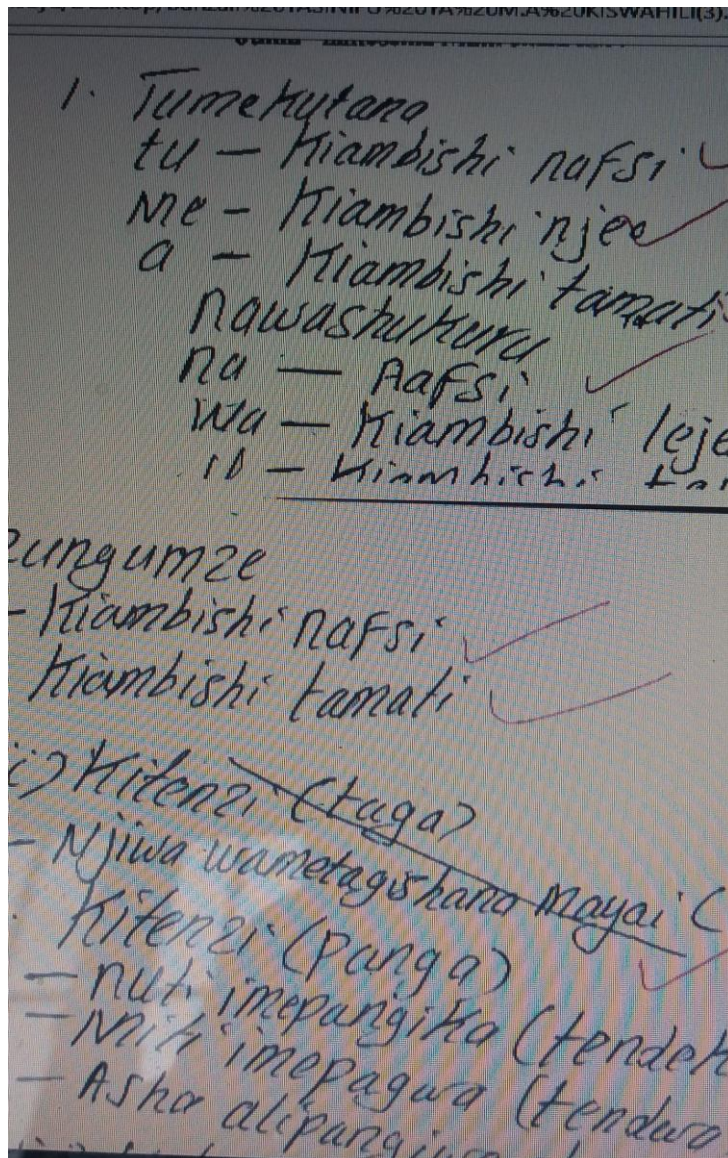 KISWAHILI(3).
1. Tumekutana
tu – Kiambishi nafsi
Me – Kiambishi njee
a – Kiambishi tamati
nawashukuru
na — nafsi
Wa – Kiambishi leje
zungumze
– Kiambishi nafsi
Kiambishi tamati
i) Kitenzi (taga)
– Njiwa wametagishana Mayai (
Kitenzi (panga)
– nuti imepangika (tendek
– Miti imepagwa (tendwa
– Asha alipangiwa